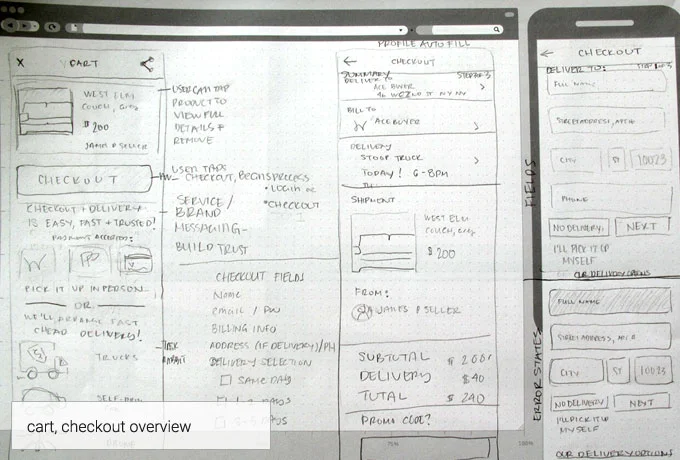 X CART
WEST ELM
COUCH, GREY
$200
JAMES P SELLER
CHECKOUT
CHECKOUT + DELIVERY
IS EASY, FAST + TRUSTED!
PAYMENTS ACCEPTED:
PICK IT UP IN PERSON
OR
WE'LL ARRANGE FAST
CHEAP DELIVERY!
TRUCKS
USER CAN TAP
PRODUCT TO
VIEW FULL
DETAILS +
REMOVE
USER TAPS
CHECKOUT, BEGINS PROCESS
• LOGIN OR
• CHECKOUT
SERVICE/
BRAND
MESSAGING-
BUILD TRUST
CHECKOUT FIELDS
NAME
EMAIL / PW
BILLING INFO
ADDRESS (IF DELIVERY)/PH
DELIVERY SELECTION
SAME DAY
DAYS
DAYS
PROFILE AUTO FILL
CHECKOUT
SUMMARY
STEP 3 OF 3
DELIVER TO
ACE BUYER
BILL TO
ACE BUYER
DELIVERY
STOOP TRUCK
TODAY! 6-8PM
SHIPMENT
WEST ELM
COUCH, GREY
$200
FROM:
JAMES P SELLER
SUBTOTAL $200
DELIVERY $40
TOTAL $240
PROMO CODE?
75%
100%
CHECKOUT
DELIVER TO:
STEP 1 OF 3
FIELDS
FULL NAME
STREET ADDRESS, APT #
CITY
ST
10023
PHONE
NO DELIVERY,
NEXT
I'LL PICK IT UP
MYSELF
OUR DELIVERY OPTIONS
ERROR STATES
FULL NAME
STREET ADDRESS, APT #
CITY
ST
10023
NO DELIVERY
NEXT
I'LL PICK IT UP
MYSELF
OUR DELIVERY OPTIONS
cart, checkout overview